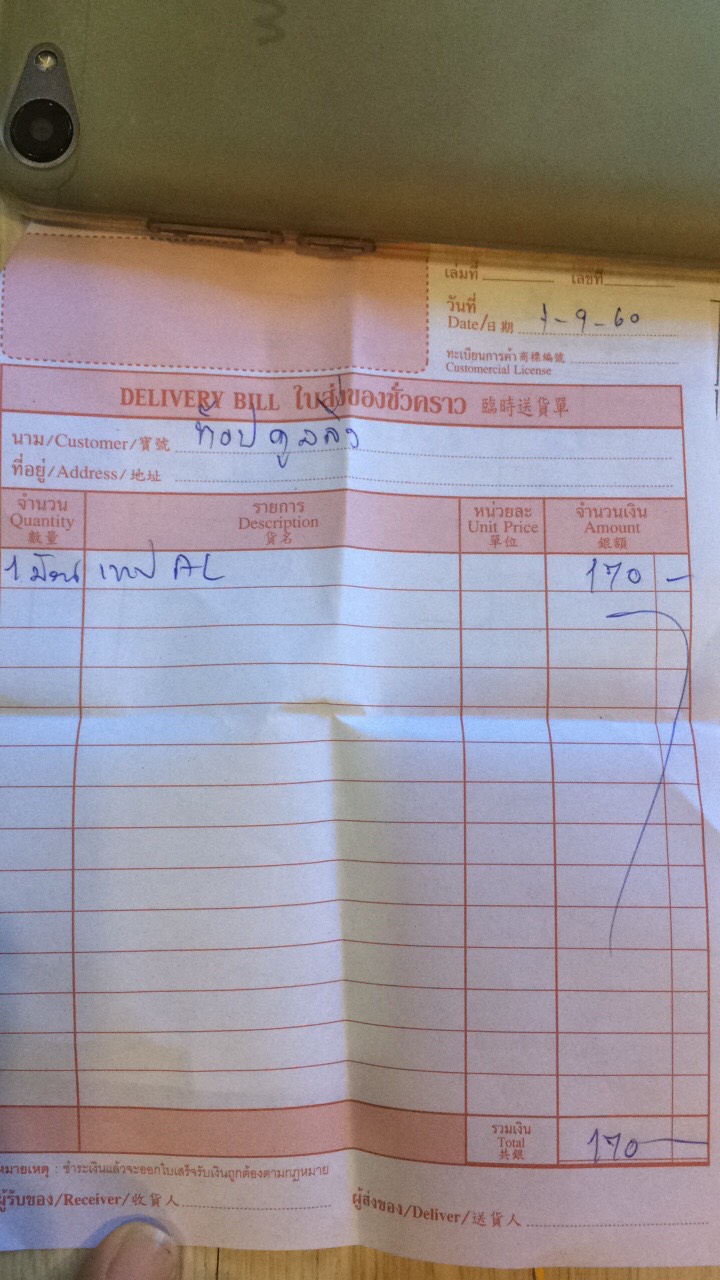 เล่มที่ เลขที่
วันที่
Date/日期 1-9-60
ทะเบียนการค้า 商標編號
Customercial License
DELIVERY BILL ใบส่งของชั่วคราว 臨時送貨單
นาม/Customer/寶號 ท็อปคูลลิ่ง
ที่อยู่/Address/地址
จำนวน รายการ หน่วยละ จำนวนเงิน
Quantity Description Unit Price Amount
數量 貨名 單位 銀額
1 ม้วน เทป AL 170 -
รวมเงิน
Total 170 -
共銀
หมายเหตุ : ชำระเงินแล้วจะออกใบเสร็จรับเงินถูกต้องตามกฎหมาย
ผู้รับของ/Receiver/收貨人 ผู้ส่งของ/Deliver/送貨人